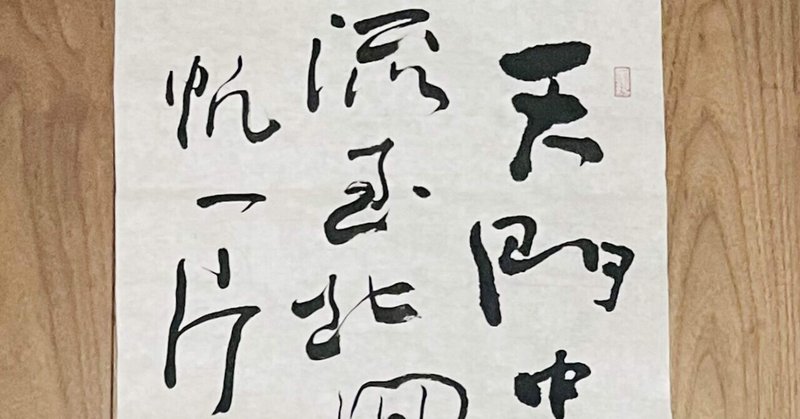 天門中
流至此回
帆一片